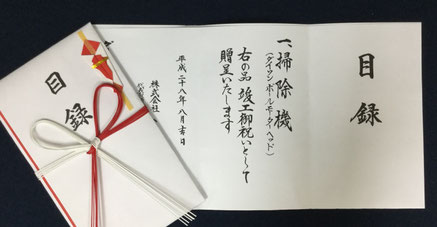 目録
一、掃除機
（ダイアンボールモーターヘッド）
右の品 竣工御祝いとして
贈呈いたします
平成二十八年 八月吉日
株式会社
目録